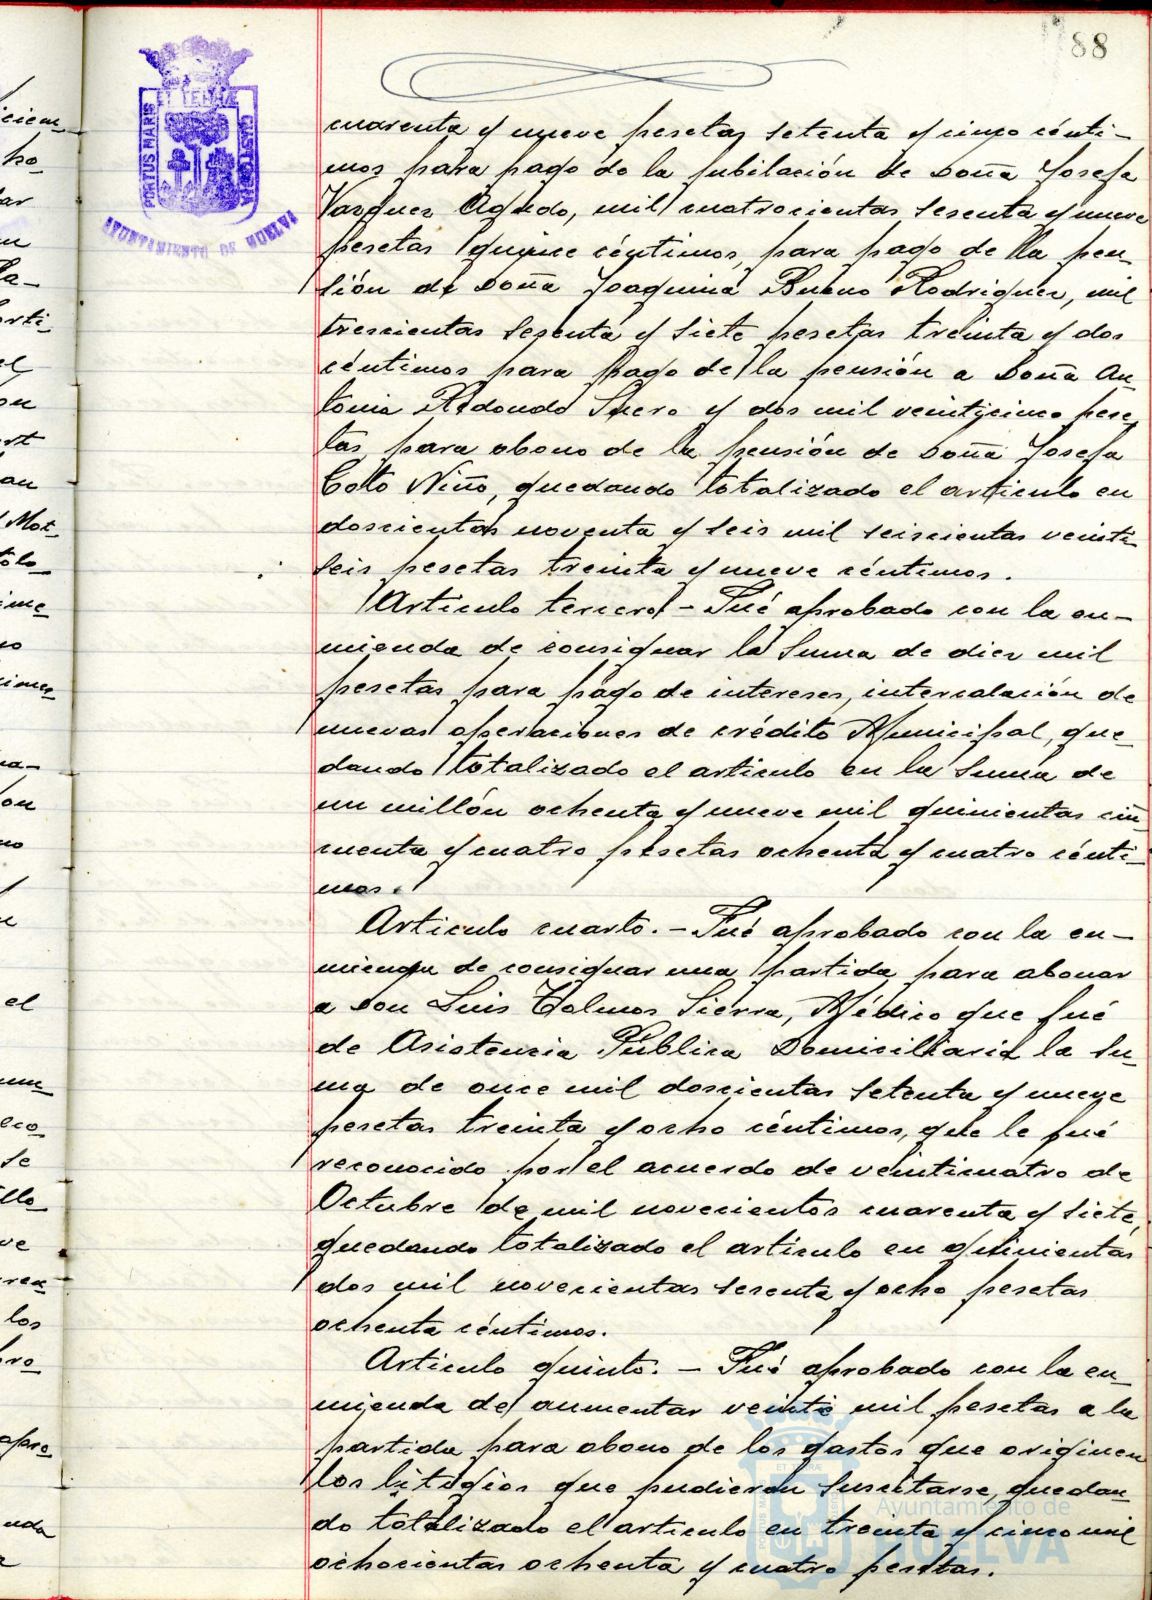 88
PORTUS MARIS
ET TERRÆ
CUSTODIA
AYUNTAMIENTO DE HUELVA
cuarenta y nueve pesetas setenta y cinco cénti-
mos para pago de la jubilación de Doña Josefa
Vazquez Agudo, mil cuatrocientas sesenta y nueve
pesetas quince céntimos, para pago de la pen-
sión de Doña Joaquina Bueno Rodriguez, mil
trescientas sesenta y siete pesetas treinta y dos
céntimos para pago de la pensión a Doña An-
tonia Redondo Suero y dos mil veinticinco pese-
tas para abono de la pensión de Doña Josefa
Coto Niño, quedando totalizado el articulo en
doscientas noventa y seis mil seiscientas veinti-
seis pesetas treinta y nueve céntimos.
Articulo tercero - Fué aprobado con la en-
mienda de consignar la suma de diez mil
pesetas para pago de intereses, intercalación de
nuevas operaciones de crédito Municipal, que-
dando totalizado el articulo en la suma de
un millón ochenta y nueve mil quinientas cin-
cuenta y cuatro pesetas ochenta y cuatro cénti-
mos.
Articulo cuarto. - Fué aprobado con la en-
mienda de consignar una partida para abonar
a Don Luis Sierra, Médico que fué
de Asistencia Pública Domiciliaria la su-
ma de once mil doscientas setenta y nueve
pesetas treinta y ocho céntimos, que le fué
reconocido por el acuerdo de veinticuatro de
Octubre de mil novecientos cuarenta y siete,
quedando totalizado el articulo en quinientas
dos mil novecientas sesenta y ocho pesetas
ochenta céntimos.
Articulo quinto. - Fué aprobado con la en-
mienda de aumentar veinte mil pesetas a la
partida para abono de los gastos que originen
los litigios que pudieran suscitarse, quedan-
do totalizado el articulo en treinta y cinco mil
ochocientas ochenta y cuatro pesetas.
Ayuntamiento de
HUELVA